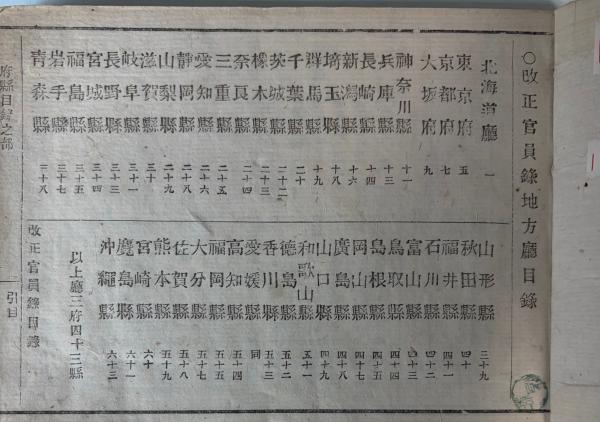 ○改正官員錄地方廳目錄
北海道廳 一
東京府 五
京都府 七
大坂府 九
神奈川縣 十一
兵庫縣 十三
長崎縣 十四
新潟縣 十六
埼玉縣 十八
群馬縣 十九
千葉縣 二十
茨城縣 二十二
橡木縣 二十三
奈良縣 二十四
三重縣 二十五
愛知縣 二十六
靜岡縣
山梨縣 二十九
滋賀縣 三十
岐阜縣 三十一
長野縣 三十三
宮城縣 三十四
福島縣 三十五
岩手縣 三十七
青森縣 三十八
山形縣 三十九
秋田縣 四十
福井縣 四十一
石川縣 四十二
富山縣 四十三
鳥取縣 四十四
島根縣 四十五
岡山縣
廣島縣 四十八
山口縣 四十九
和歌山縣 五十一
德島縣 五十二
香川縣 五十三
愛媛縣 同
高知縣 五十四
福岡縣 五十五
大分縣 五十七
佐賀縣 五十八
熊本縣 五十九
宮崎縣 六十
麑島縣 六十一
沖繩縣 六十三
以上廳三府四十三縣
府縣目錄之部
引目
改正官員錄目錄